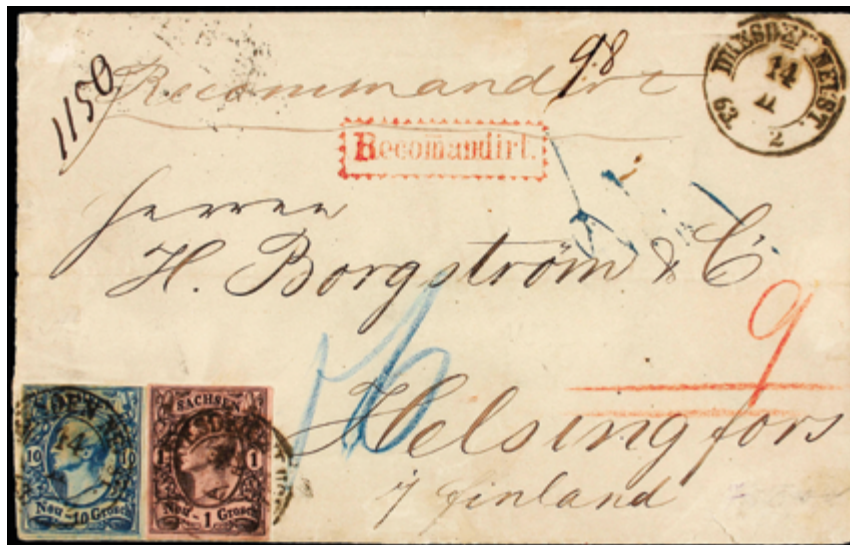 1150
98
Recommandirt
DRESDEN NEUST
14
II
63
2
Recomandirt.
Herren
H. Borgström & C
9
Helsingfors
i/ Finland
10 10
Neu - 10 Grosch
SACHSEN
1 1
Neu - 1 Grosch